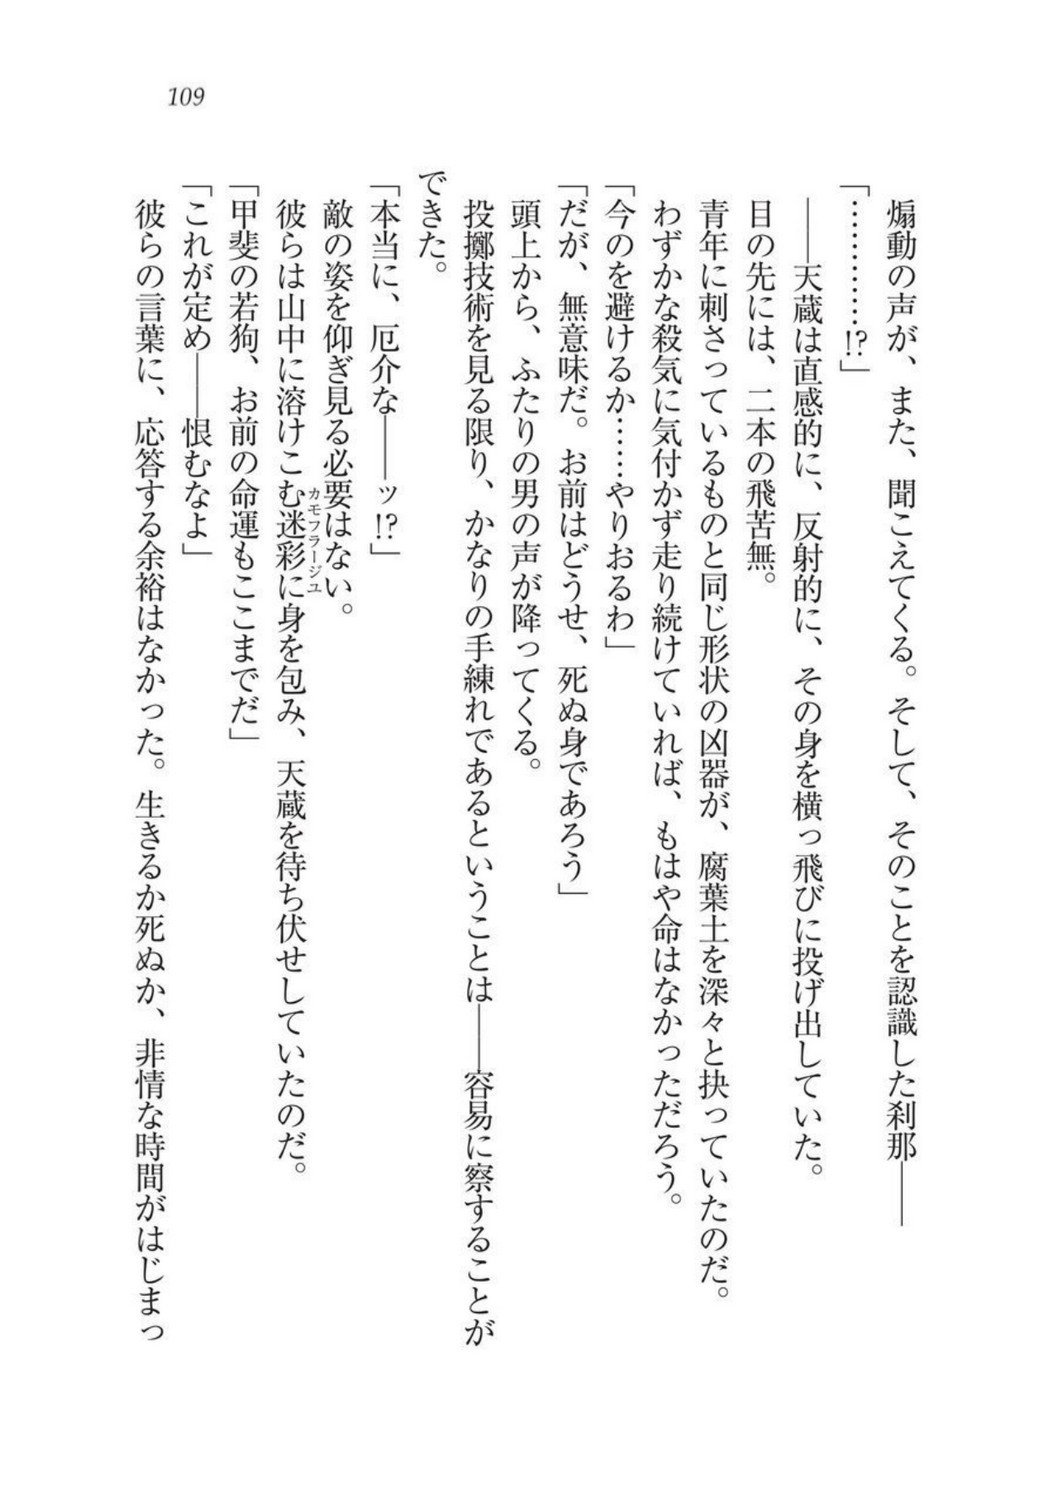 109
煽動の声が、また、聞こえてくる。そして、そのことを認識した刹那――
「…………!?」
――天蔵は直感的に、反射的に、その身を横っ飛びに投げ出していた。
目の先には、二本の飛苦無。
青年に刺さっているものと同じ形状の凶器が、腐葉土を深々と抉っていたのだ。
わずかな殺気に気付かず走り続けていれば、もはや命はなかっただろう。
「今のを避けるか……やりおるわ」
「だが、無意味だ。お前はどうせ、死ぬ身であろう」
頭上から、ふたりの男の声が降ってくる。
投擲技術を見る限り、かなりの手練れであるということは――容易に察することが
できた。
「本当に、厄介な――ッ!?」
敵の姿を仰ぎ見る必要はない。
彼らは山中に溶けこむ迷彩に身を包み、天蔵を待ち伏せしていたのだ。
カモフラージユ
「甲斐の若狗、お前の命運もここまでだ」
「これが定め――恨むなよ」
彼らの言葉に、応答する余裕はなかった。生きるか死ぬか、非情な時間がはじまっ